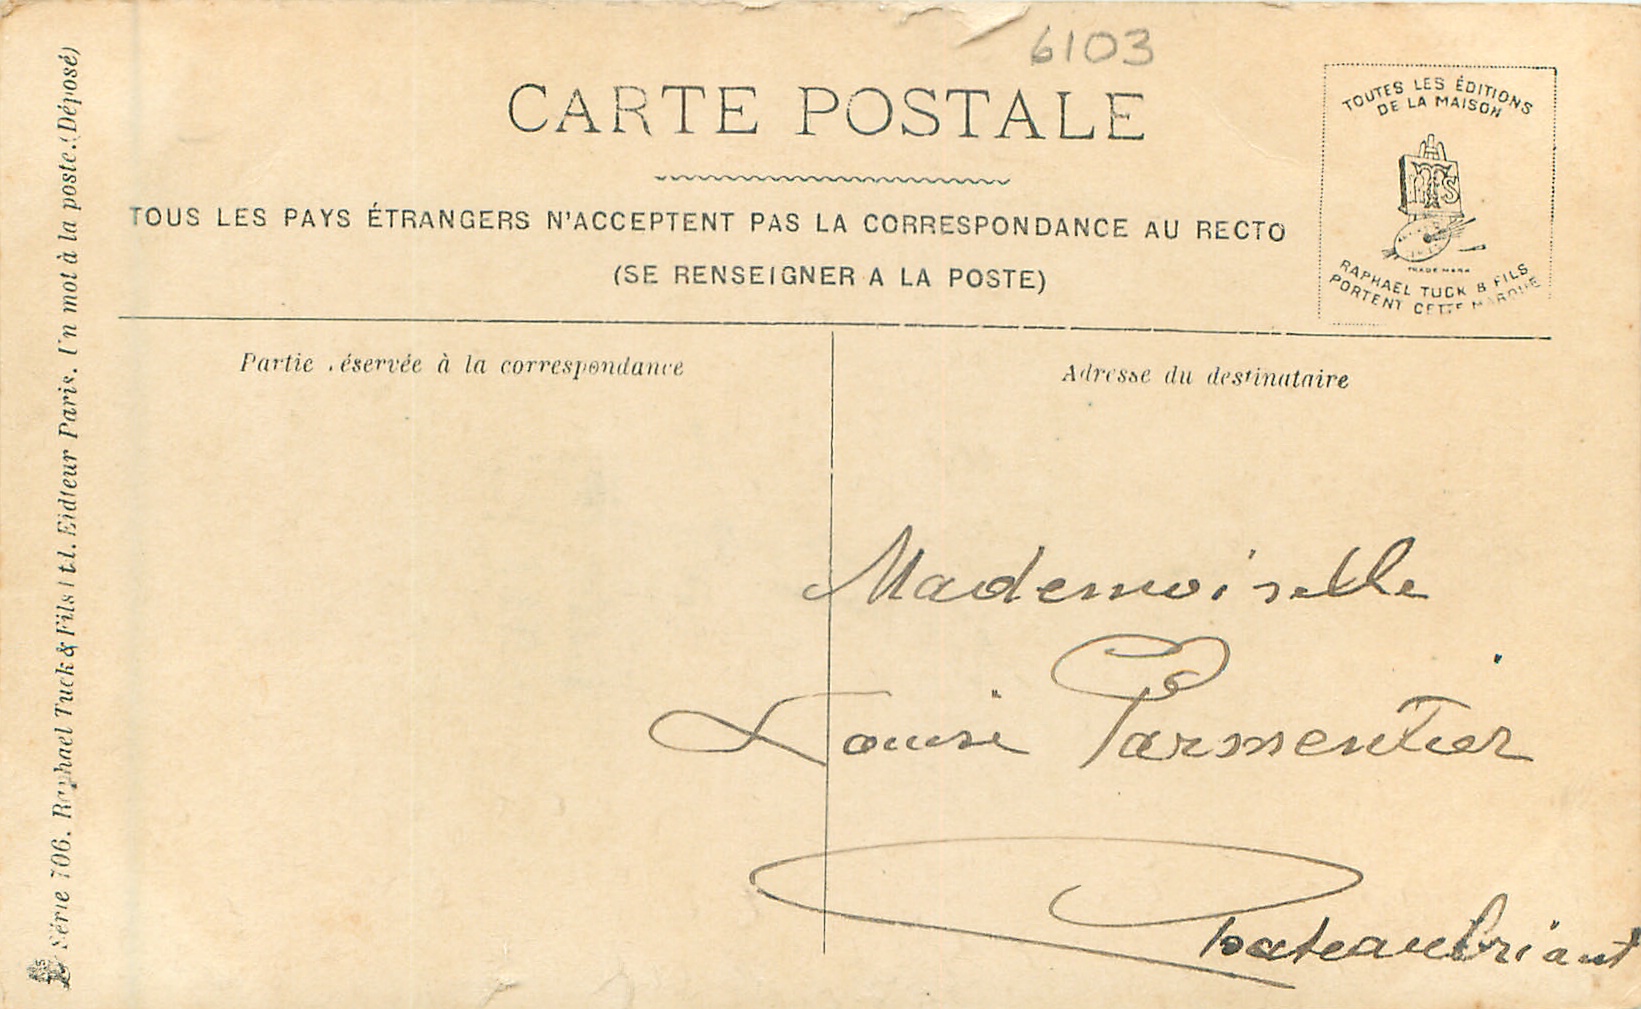 6103
CARTE POSTALE
TOUS LES PAYS ÉTRANGERS N'ACCEPTENT PAS LA CORRESPONDANCE AU RECTO
(SE RENSEIGNER A LA POSTE)
TOUTES LES ÉDITIONS
DE LA MAISON
TRADE MARK
RAPHAEL TUCK & FILS
PORTENT CETTE MARQUE
Partie réservée à la correspondance
Adresse du destinataire
Mademoiselle
Louise Parmentier
Chateaubriant
Série 706. Raphael Tuck & Fils Ltd. Eidteur Paris. Un mot à la poste. (Déposé)